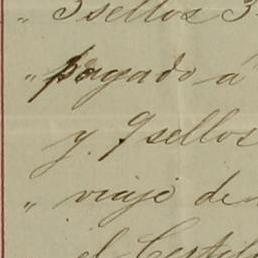 " 3 sellos 3
" pagado á
y 9 sellos
" viaje de
el